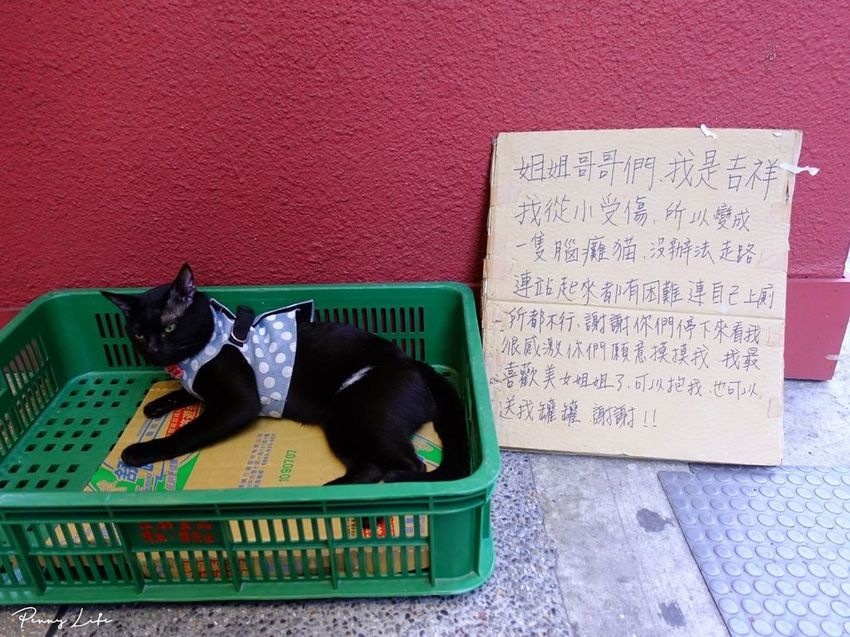 姐姐哥哥們、我是吉祥
我從小受傷、所以變成
一隻腦癱猫、沒辦法走路
連站起來都有困難 連自己上廁
所都不行、謝謝你們停下來看我
很感激你們願意摸摸我 我最
喜歡美女姐姐了、可以抱我、也可以
送我罐罐、謝謝!!
1090707
Penny Life